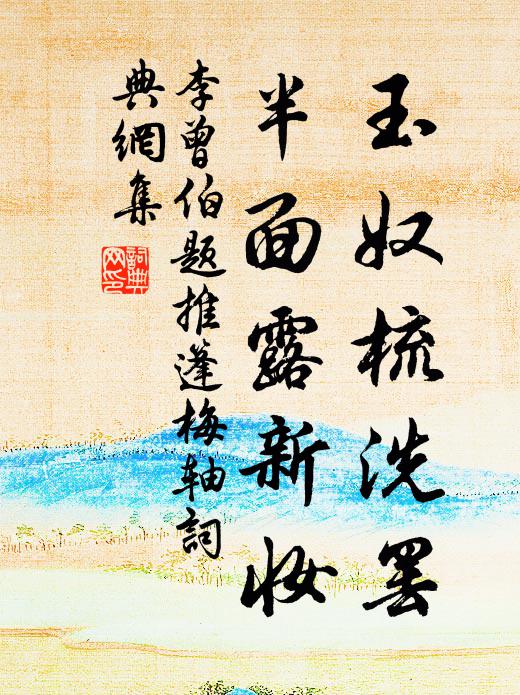 玉奴梳洗罢
半面露新妆
李曾伯题推蓬梅轴词
典網集
詞典網印